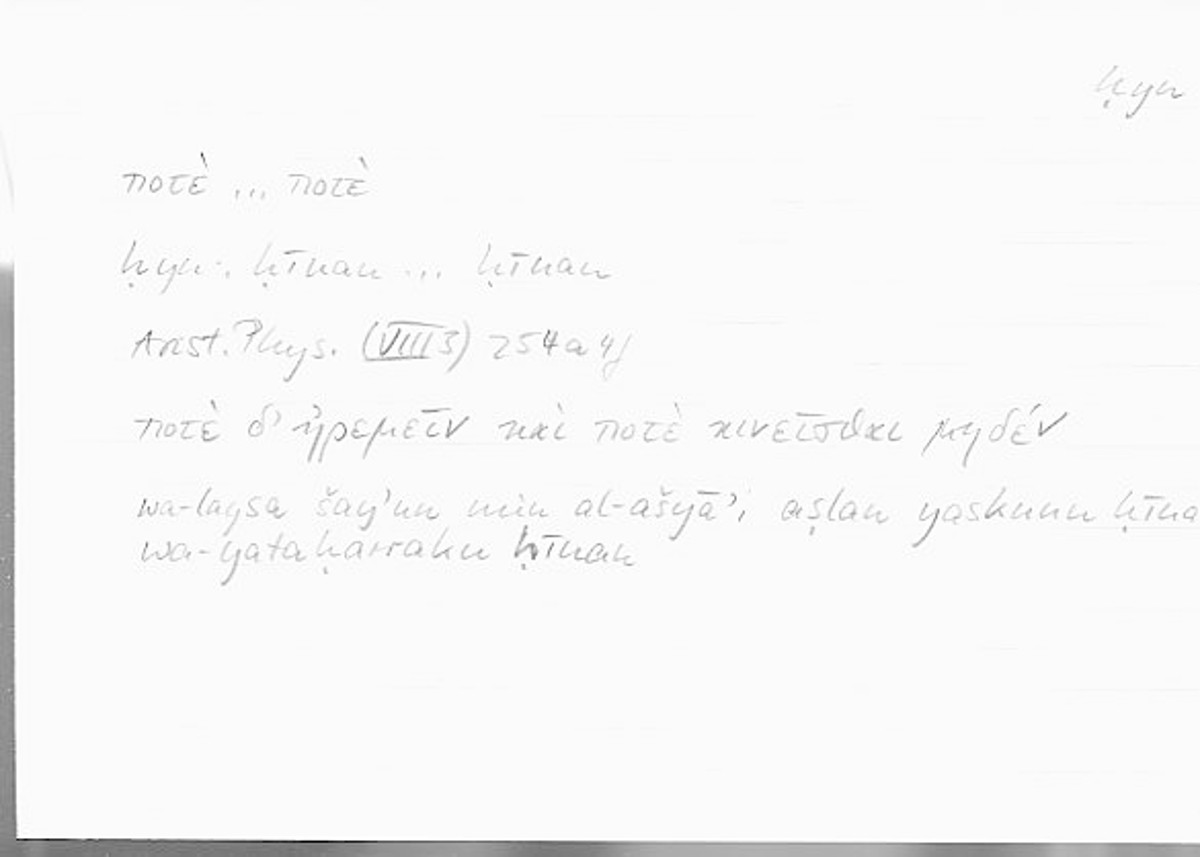 ḥyn
ποτὲ ... ποτὲ
ḥyn: ḥīnan ... ḥīnan
Arist. Phys. (VIII 3) 254a4f
ποτὲ δ' ἠρεμεῖν καὶ ποτὲ κινεῖσθαι μηδέν
wa-laysa šay'un min al-ašyā'i aṣlan yaskunu ḥīna
wa-yataḥarraku ḥīnan